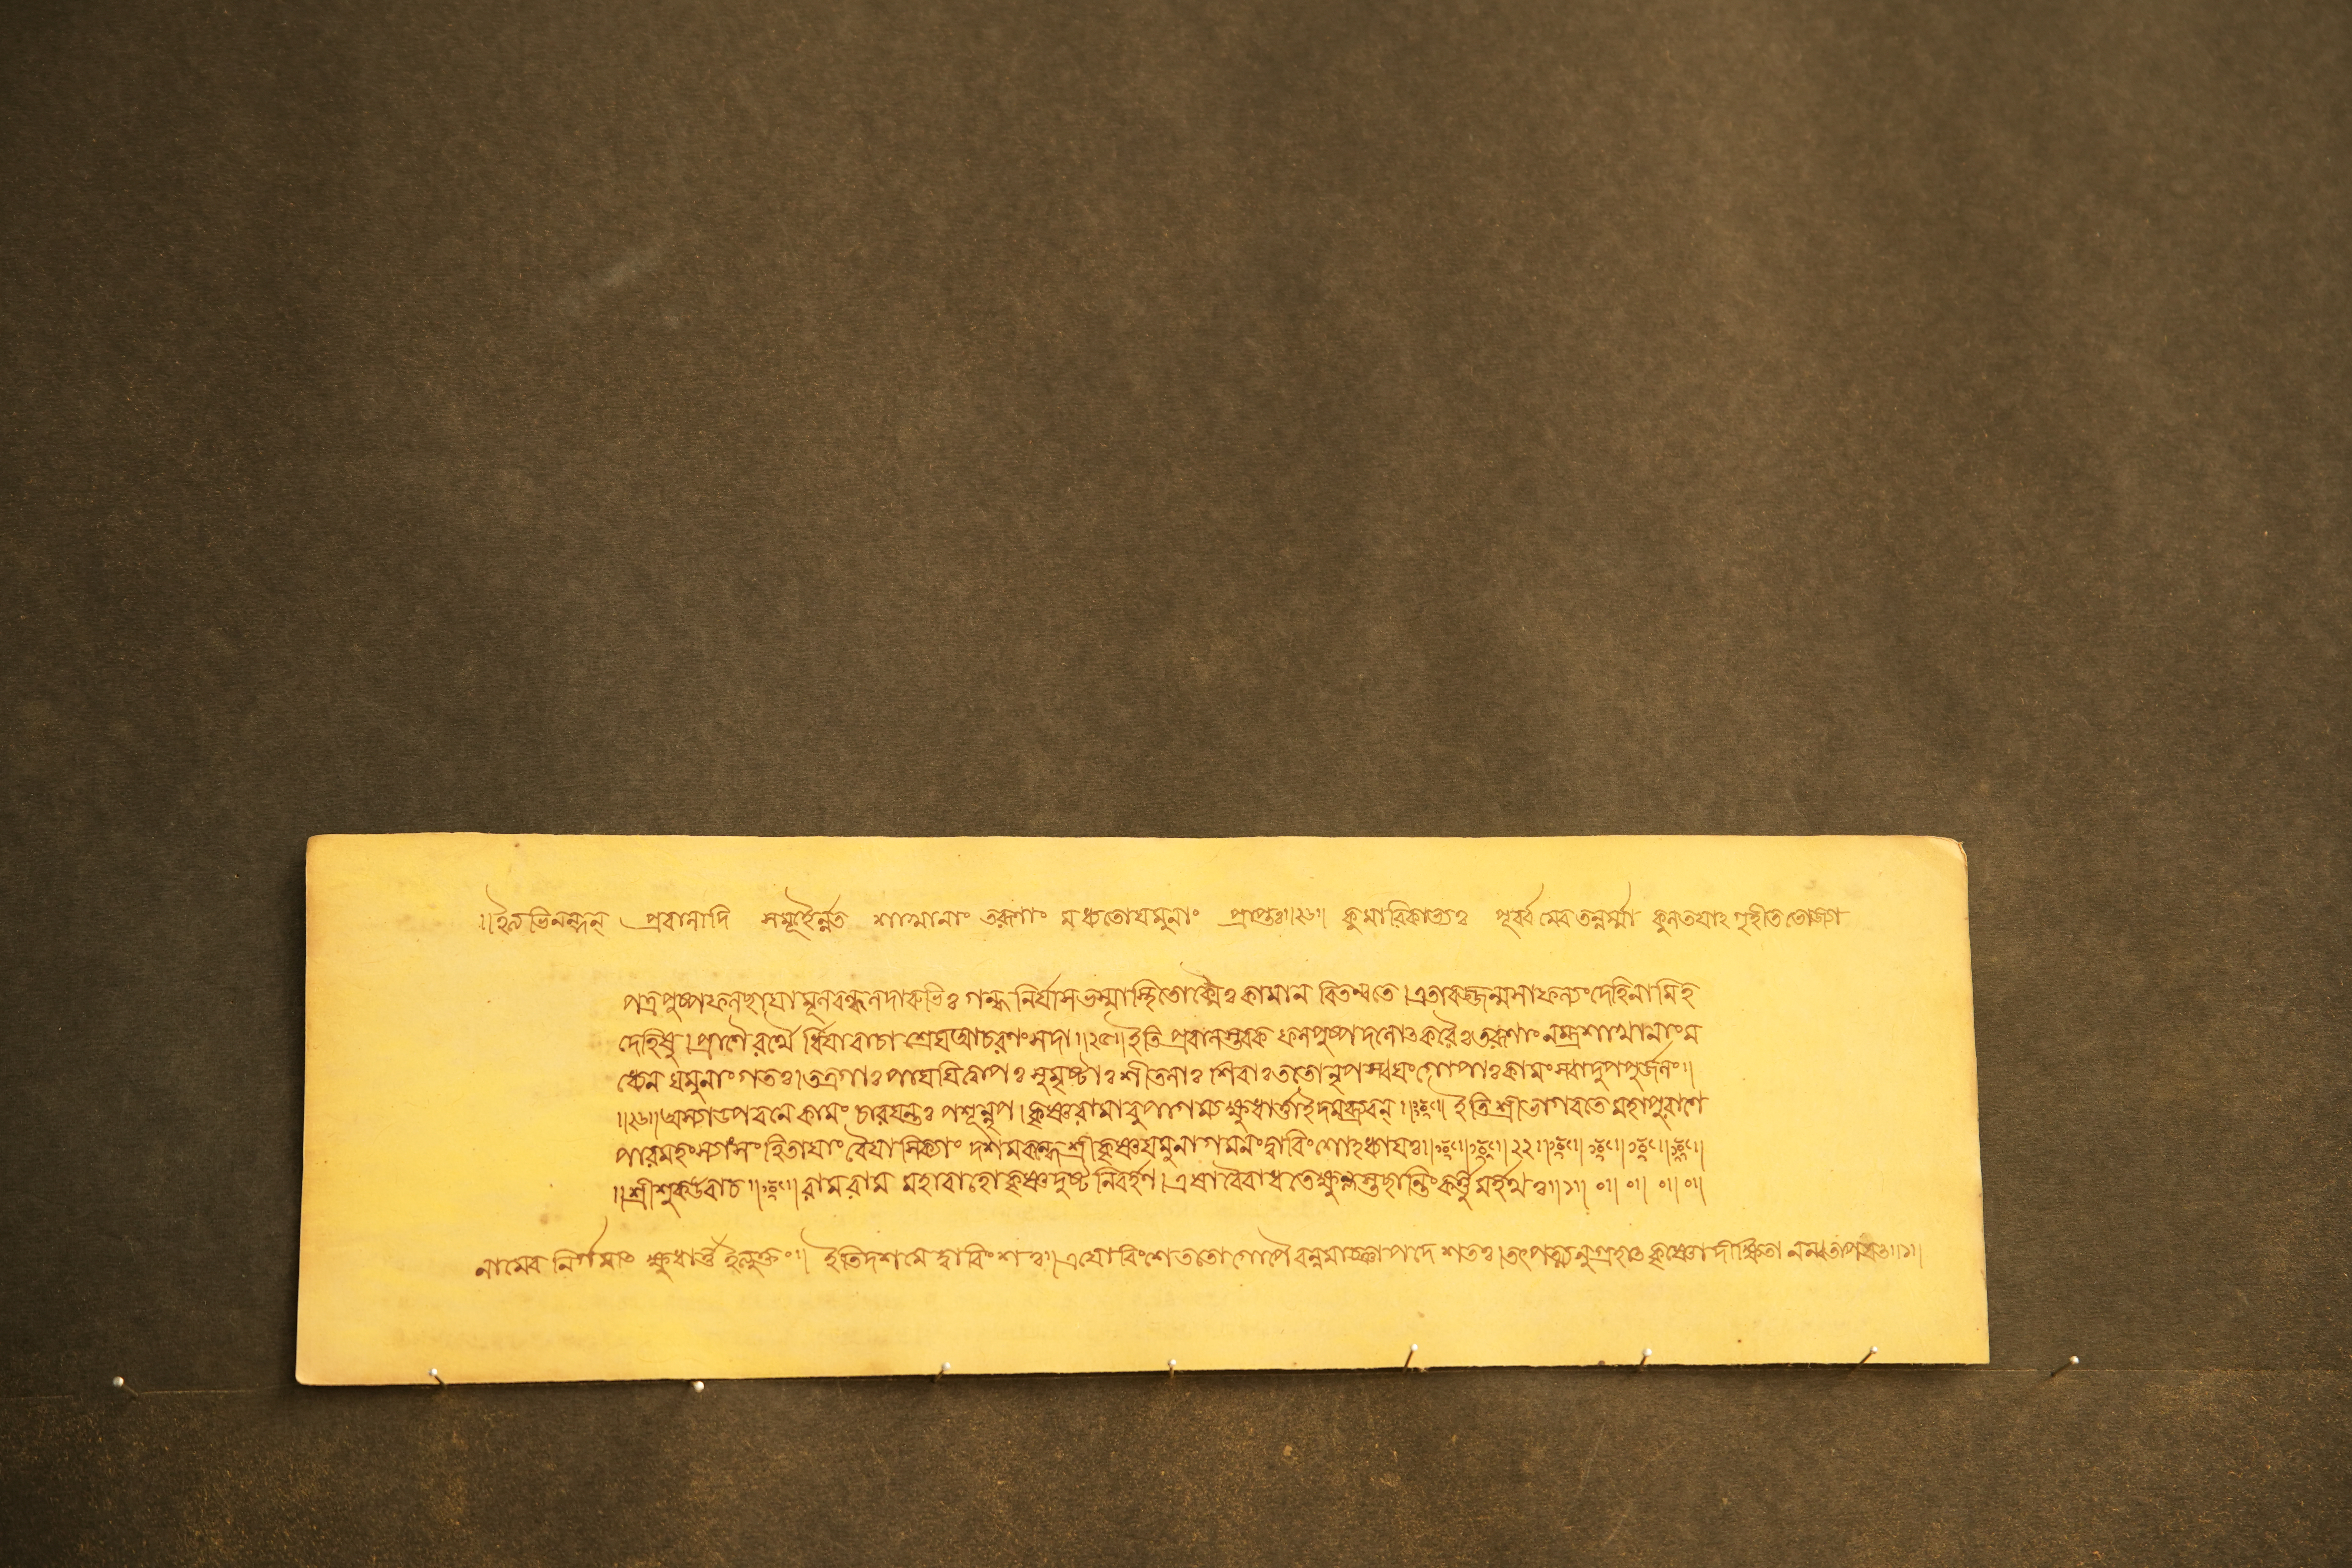 ।।ইত্যভিনন্দন্ প্রবালাদি সমূহৈর্ন্নত শাখানাং তরূণাং মধ্যতোযমুনাং প্রাপ্তঃ।।২৬।। কুমারিকাভ্যঃ পূর্ব্ব মেব তন্নর্ম্মা কুলতযাঽ গৃহীত ভোজ্যা
পত্রপুষ্পফলছাযা মূলবল্কলদারুভিঃ গন্ধ নির্যাসভস্মাস্থিতোক্মৈঃ কামান বিতন্বতে।এতাবজ্জন্মসাফল্যং দেহিনামিহ
দেহিষু।প্রাণৈ রর্থৈ র্ধিযাবাচা শ্রেযআচরণং সদা।।২৫।।ইতি প্রবালস্তবক ফলপুষ্প দলোৎকরৈঃতরূণাং নম্রশাখানাং ম
ধ্যেন যমুনাং গতঃ।তত্রগাঃ পাযযিত্বাপঃ সুমৃষ্টাঃ শীতলাঃ শিবাঃততোনৃপ স্বযংগোপাঃ কামং স্বাদুপপুর্জলং।।
।।২৬।।তস্যাউপবনে কামং চারযন্তঃ পশূন্নৃপ।কৃষ্ণরামাবুপাগম্য ক্ষুধার্ত্তাইদমব্রুবন্।। ইতি শ্রীভাগবতে মহাপুরাণে
পারমহংস্যাংসংহিতাযাং বৈযাসিক্যাং দশমস্কন্ধে শ্রীকৃষ্ণযমুনাগমনং দ্বাবিংশোঽধ্যাযঃ।। ২২।।
।।শ্রীশুকউবাচ।। রামরাম মহাবাহো কৃষ্ণ দুষ্ট নিবর্হণ।এষাবৈবাধতেক্ষুন্নস্তছান্তিংকর্ত্তুমর্হথঃ।।১।। ০।। ০।। ০।। ০।।
নামেব নির্গমাৎ ক্ষুধার্ত্তা ইত্যুক্তং।। ইতিদশমে দ্বাবিংশঃ।।এযোবিংশেততোগোপৈ রন্নমাজ্ঞাপদে শতঃ।তৎপত্ন্যনুগ্রহাৎ কৃষ্ণো দীক্ষিতা